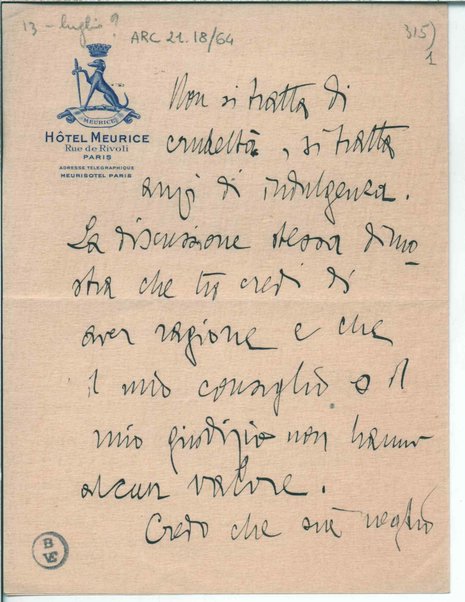 13 - luglio ?
ARC 21.18/64
315)
1
MEURICE
HÔTEL MEURICE
Rue de Rivoli
PARIS
ADRESSE TÉLÉGRAPHIQUE
MEURISOTEL PARIS
Non si tratta di
crudeltà, si tratta
anzi di indulgenza.
La discussione stessa dimo
stra che tu credi di
aver ragione e che
il mio consiglio o il
mio giudizio non hanno
alcun valore.
Credo che sia meglio
B
VE